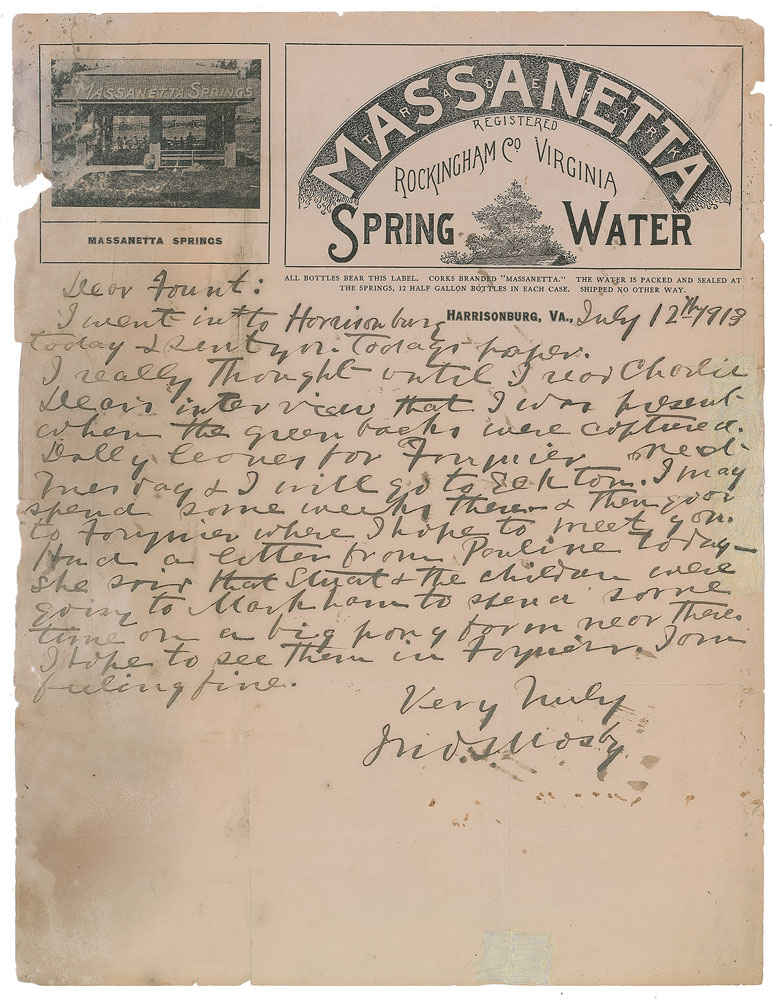 MASSANETTA SPRINGS
MASSANETTA SPRINGS
MASSANETTA
TRADE MARK
REGISTERED
ROCKINGHAM CO VIRGINIA
SPRING WATER
ALL BOTTLES BEAR THIS LABEL. CORKS BRANDED "MASSANETTA." THE WATER IS PACKED AND SEALED AT
THE SPRINGS, 12 HALF GALLON BOTTLES IN EACH CASE. SHIPPED NO OTHER WAY.
HARRISONBURG, VA., July 12th 1913
Dear Fount:
I went into Harrisonburg
today & sent you todays paper.
I really thought until I read Charlie
Dear's interview that I was present
when the green backs were captured.
Dolly leaves for Fauquier next
Tuesday & I will go to Elkton. I may
spend some weeks there & then go on
to Fauquier where I hope to meet you.
Had a letter from Pauline today—
she said that Stuart & the children were
going to Markham to spend some
time on a big pony farm near there.
I hope to see them in Fauquier. I am
feeling fine.
Very Truly
Jno. S. Mosby